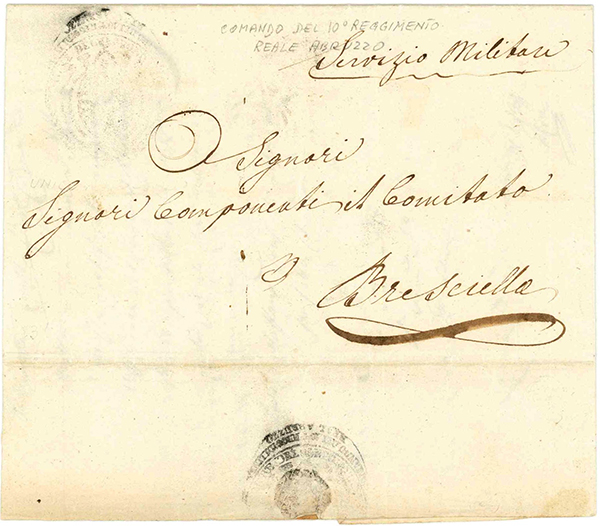 COMANDO DEL 10° REGGIMENTO
REALE ABRUZZO
Servizio Militare
Signori
Signori Componenti il Comitato
Bresciella
REAL ABRUZZO